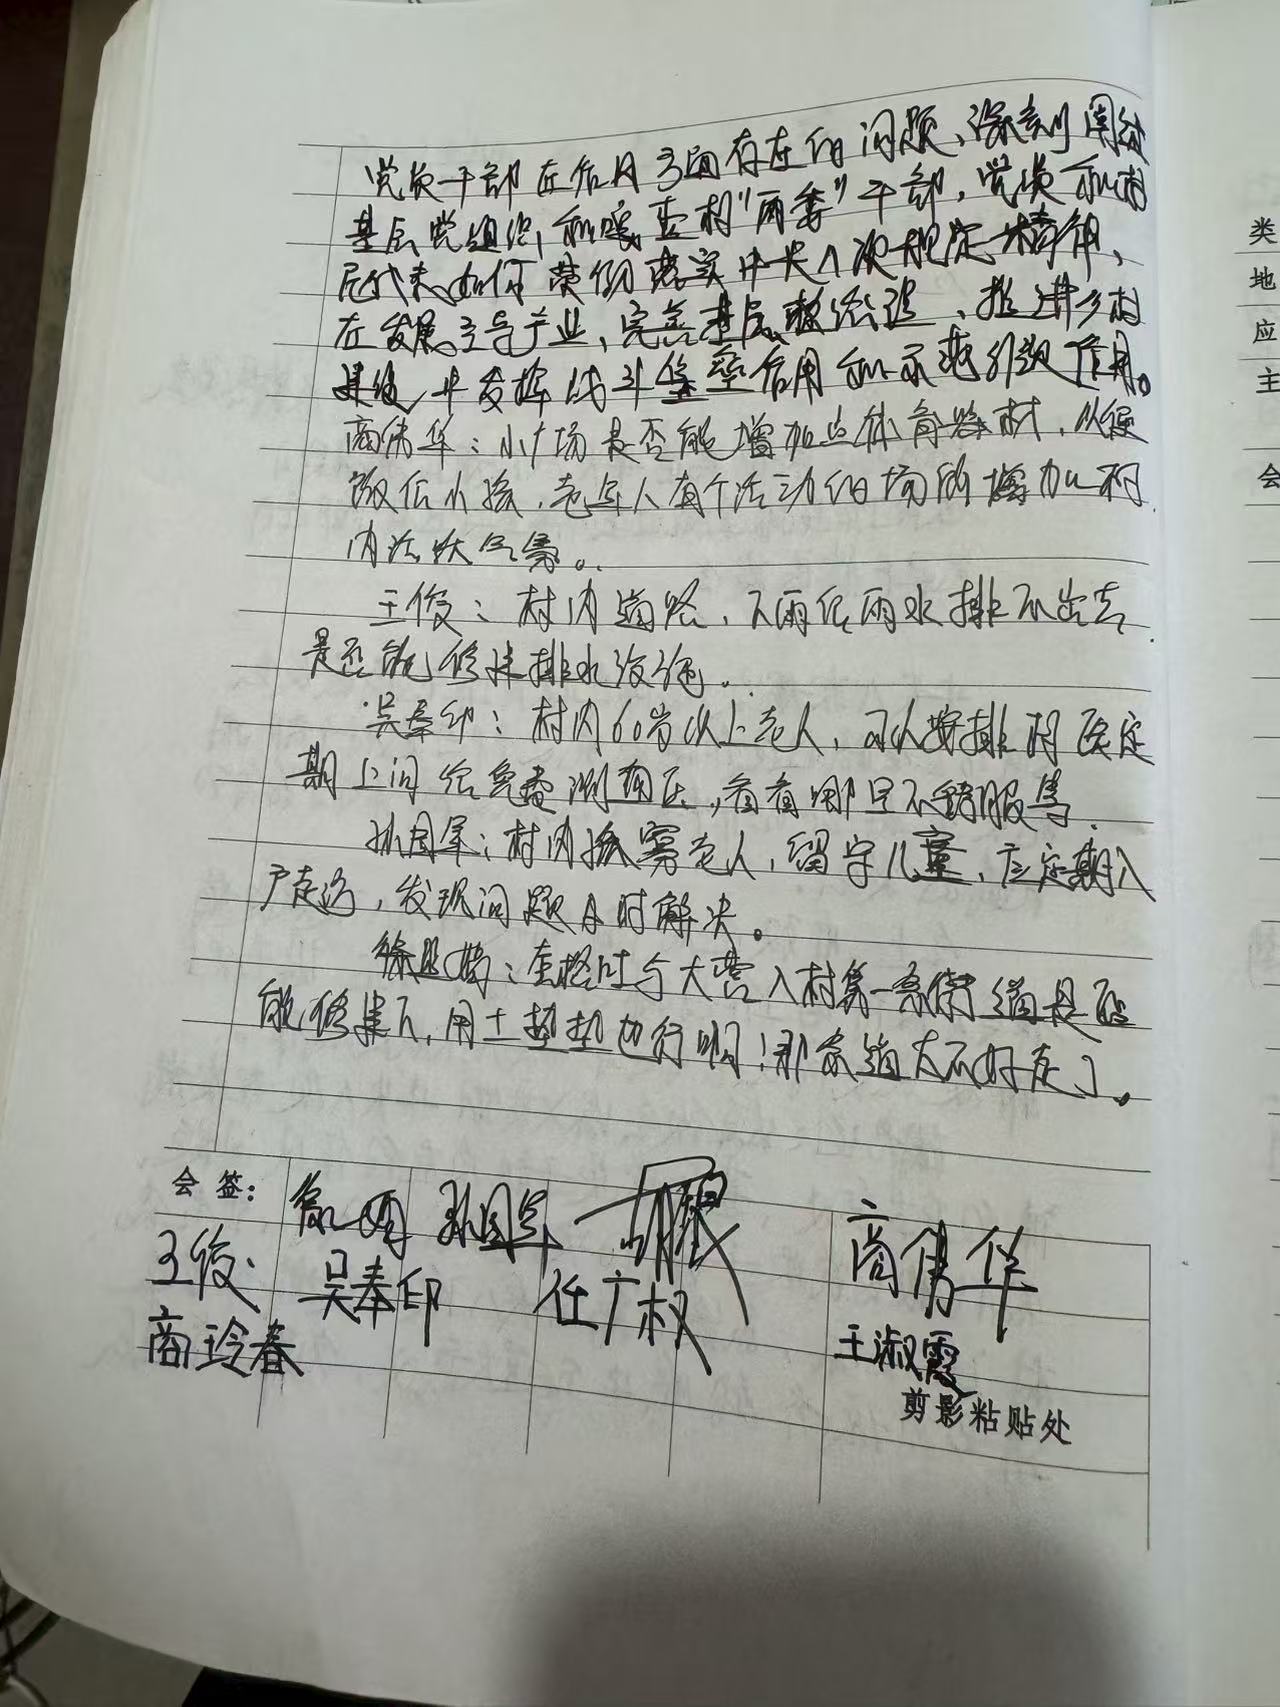 党员干部在作风方面存在的问题,深刻阐述
基层党组织和 村"两委"干部,党员和村
民代表如何贯彻落实中央八项规定精神、
在发展主导产业、完善基层 治 、推进乡村
建设中发挥战斗堡垒作用和示范引领作用。
商伟华:小广场是否能增加点体育器材,以便
做任小孩,老年人有个活动的场所增加村
内活跃气氛。
王俊:村内道路,下雨任雨水排不出去
是否能修建排水设施。
吴奉印:村内60岁以上老人,可以安排村医定
期上门给免费测血压,看看哪里不舒服等.
孙国军:村内孤寡老人,留守儿童,应定期入
户走访,发现问题及时解决。
徐 : 与大营入村第一条街道是否
能修建下,用土垫垫也行啊!那条道太不好走了。
会签:
孙国军
商伟华
王俊
吴奉印
任广权
商玲春
王淑霞
剪影粘贴处
类
地
应
主
会